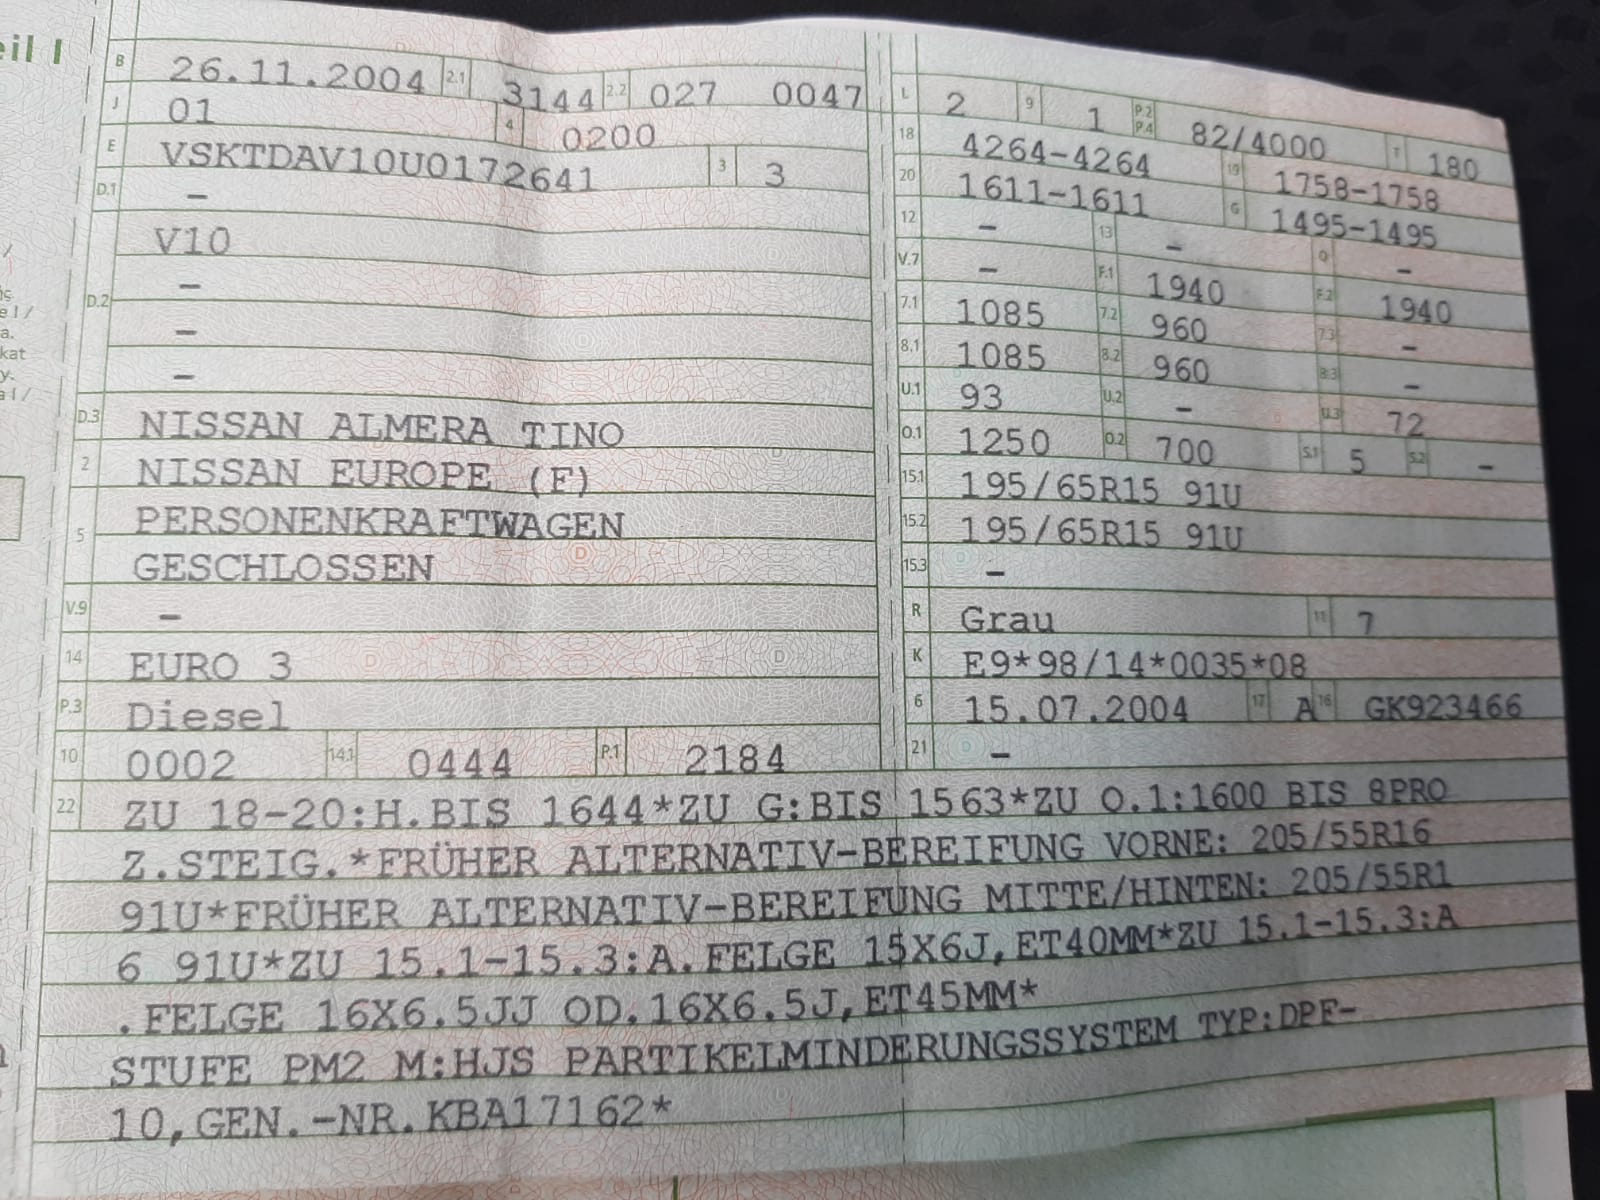 eil I
B 26.11.2004 2.1 3144 2.2 027 0047
J 01 4 0200
E VSKTDAV10U0172641 3 3
D.1 –
D.2 V10
–
–
–
D.3 NISSAN ALMERA TINO
2 NISSAN EUROPE (F)
5 PERSONENKRAFTWAGEN
GESCHLOSSEN
V.9 –
14 EURO 3
P.3 Diesel
10 0002 14.1 0444 P.1 2184
L 2 9 1 P.2 P.4 82/4000 T 180
18 4264-4264 19 1758-1758
20 1611-1611 G 1495-1495
12 – 13 – Q –
V.7 – F.1 1940 F.2 1940
7.1 1085 7.2 960 7.3 –
8.1 1085 8.2 960 8.3 –
U.1 93 U.2 – U.3 72
O.1 1250 O.2 700 S.1 5 S.2 –
15.1 195/65R15 91U
15.2 195/65R15 91U
15.3 –
R Grau 11 7
K E9*98/14*0035*08
6 15.07.2004 17 A 16 GK923466
21 –
22 ZU 18-20:H.BIS 1644*ZU G:BIS 1563*ZU O.1:1600 BIS 8PRO
Z.STEIG.*FRÜHER ALTERNATIV-BEREIFUNG VORNE: 205/55R16
91U*FRÜHER ALTERNATIV-BEREIFUNG MITTE/HINTEN: 205/55R1
6 91U*ZU 15.1-15.3:A.FELGE 15X6J,ET40MM*ZU 15.1-15.3:A
.FELGE 16X6.5JJ OD.16X6.5J,ET45MM*
STUFE PM2 M:HJS PARTIKELMINDERUNGSSYSTEM TYP:DPF-
10,GEN.-NR.KBA17162*